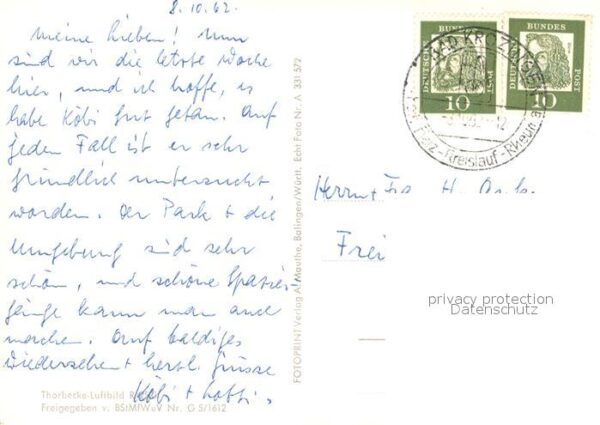 8.10.62.
Meine Lieben! Nun
sind wir die letzte Woche
hier, und ich hoffe, es
habe Köbi gut getan. Auf
jeden Fall ist er sehr
gründlich untersucht
worden. Der Park + die
Umgebung sind sehr
schön, und schöne Spazier-
gänge kann man auch
machen. Auf baldiges
Wiedersehen + herzl. Grüsse
Köbi +
Thorbecke-Luftbild
Freigegeben v. BStMfWuV Nr. G 5/1612
FOTOPRINT Verlag A. Mauthe, Balingen/Württ. Echt Foto Nr. A 331 572
DEUTSCHE BUNDESPOST
10
DEUTSCHE BUNDESPOST
10
BAD KROZINGEN
Herz-Kreislauf-Rheuma
Herrn + Fr.
Frei
privacy protection
Datenschutz